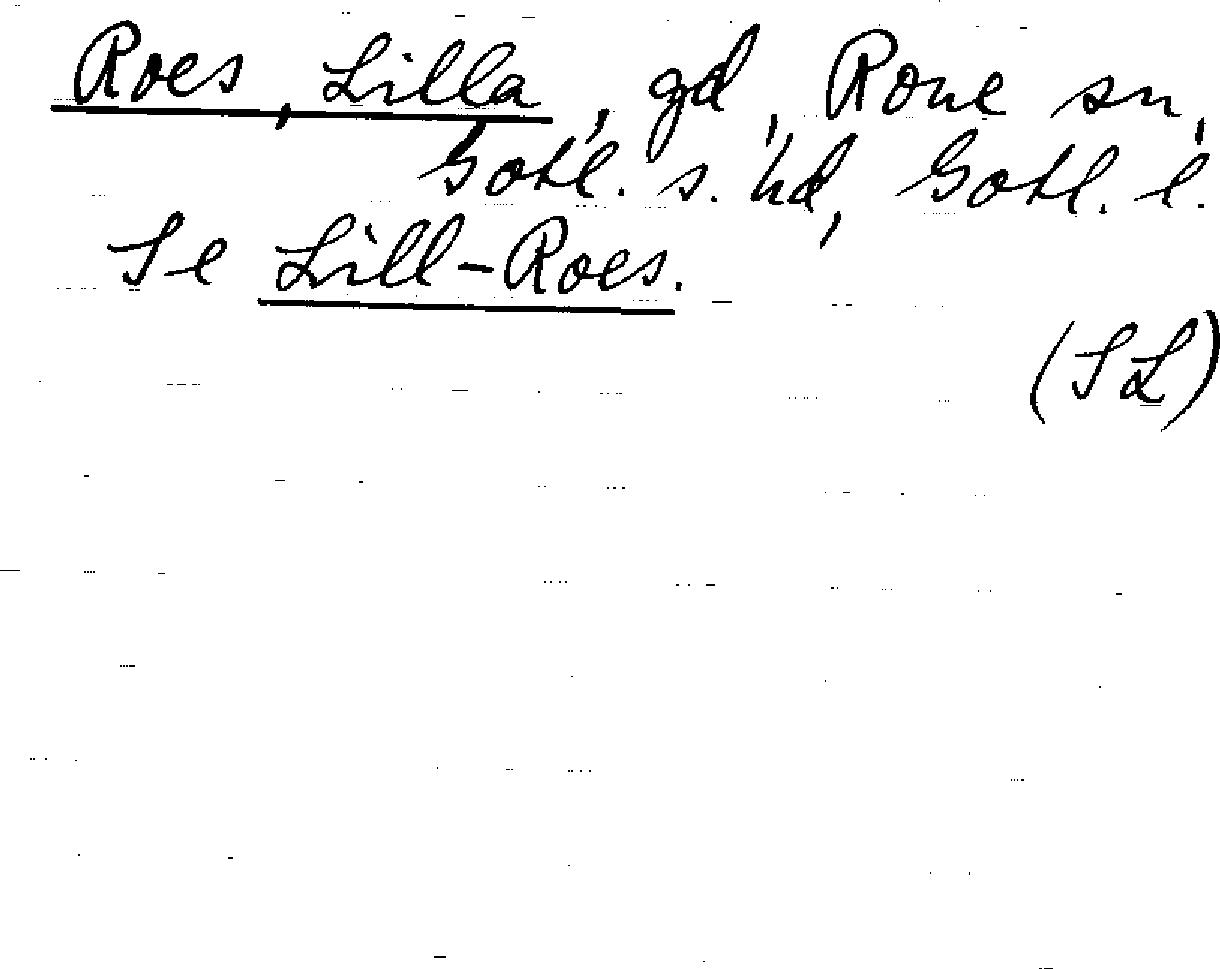 Roes, Lilla, gd, Rone sn,
Gotl. s. hd, Gotl. l.
Se Lill-Roes.
(SL)